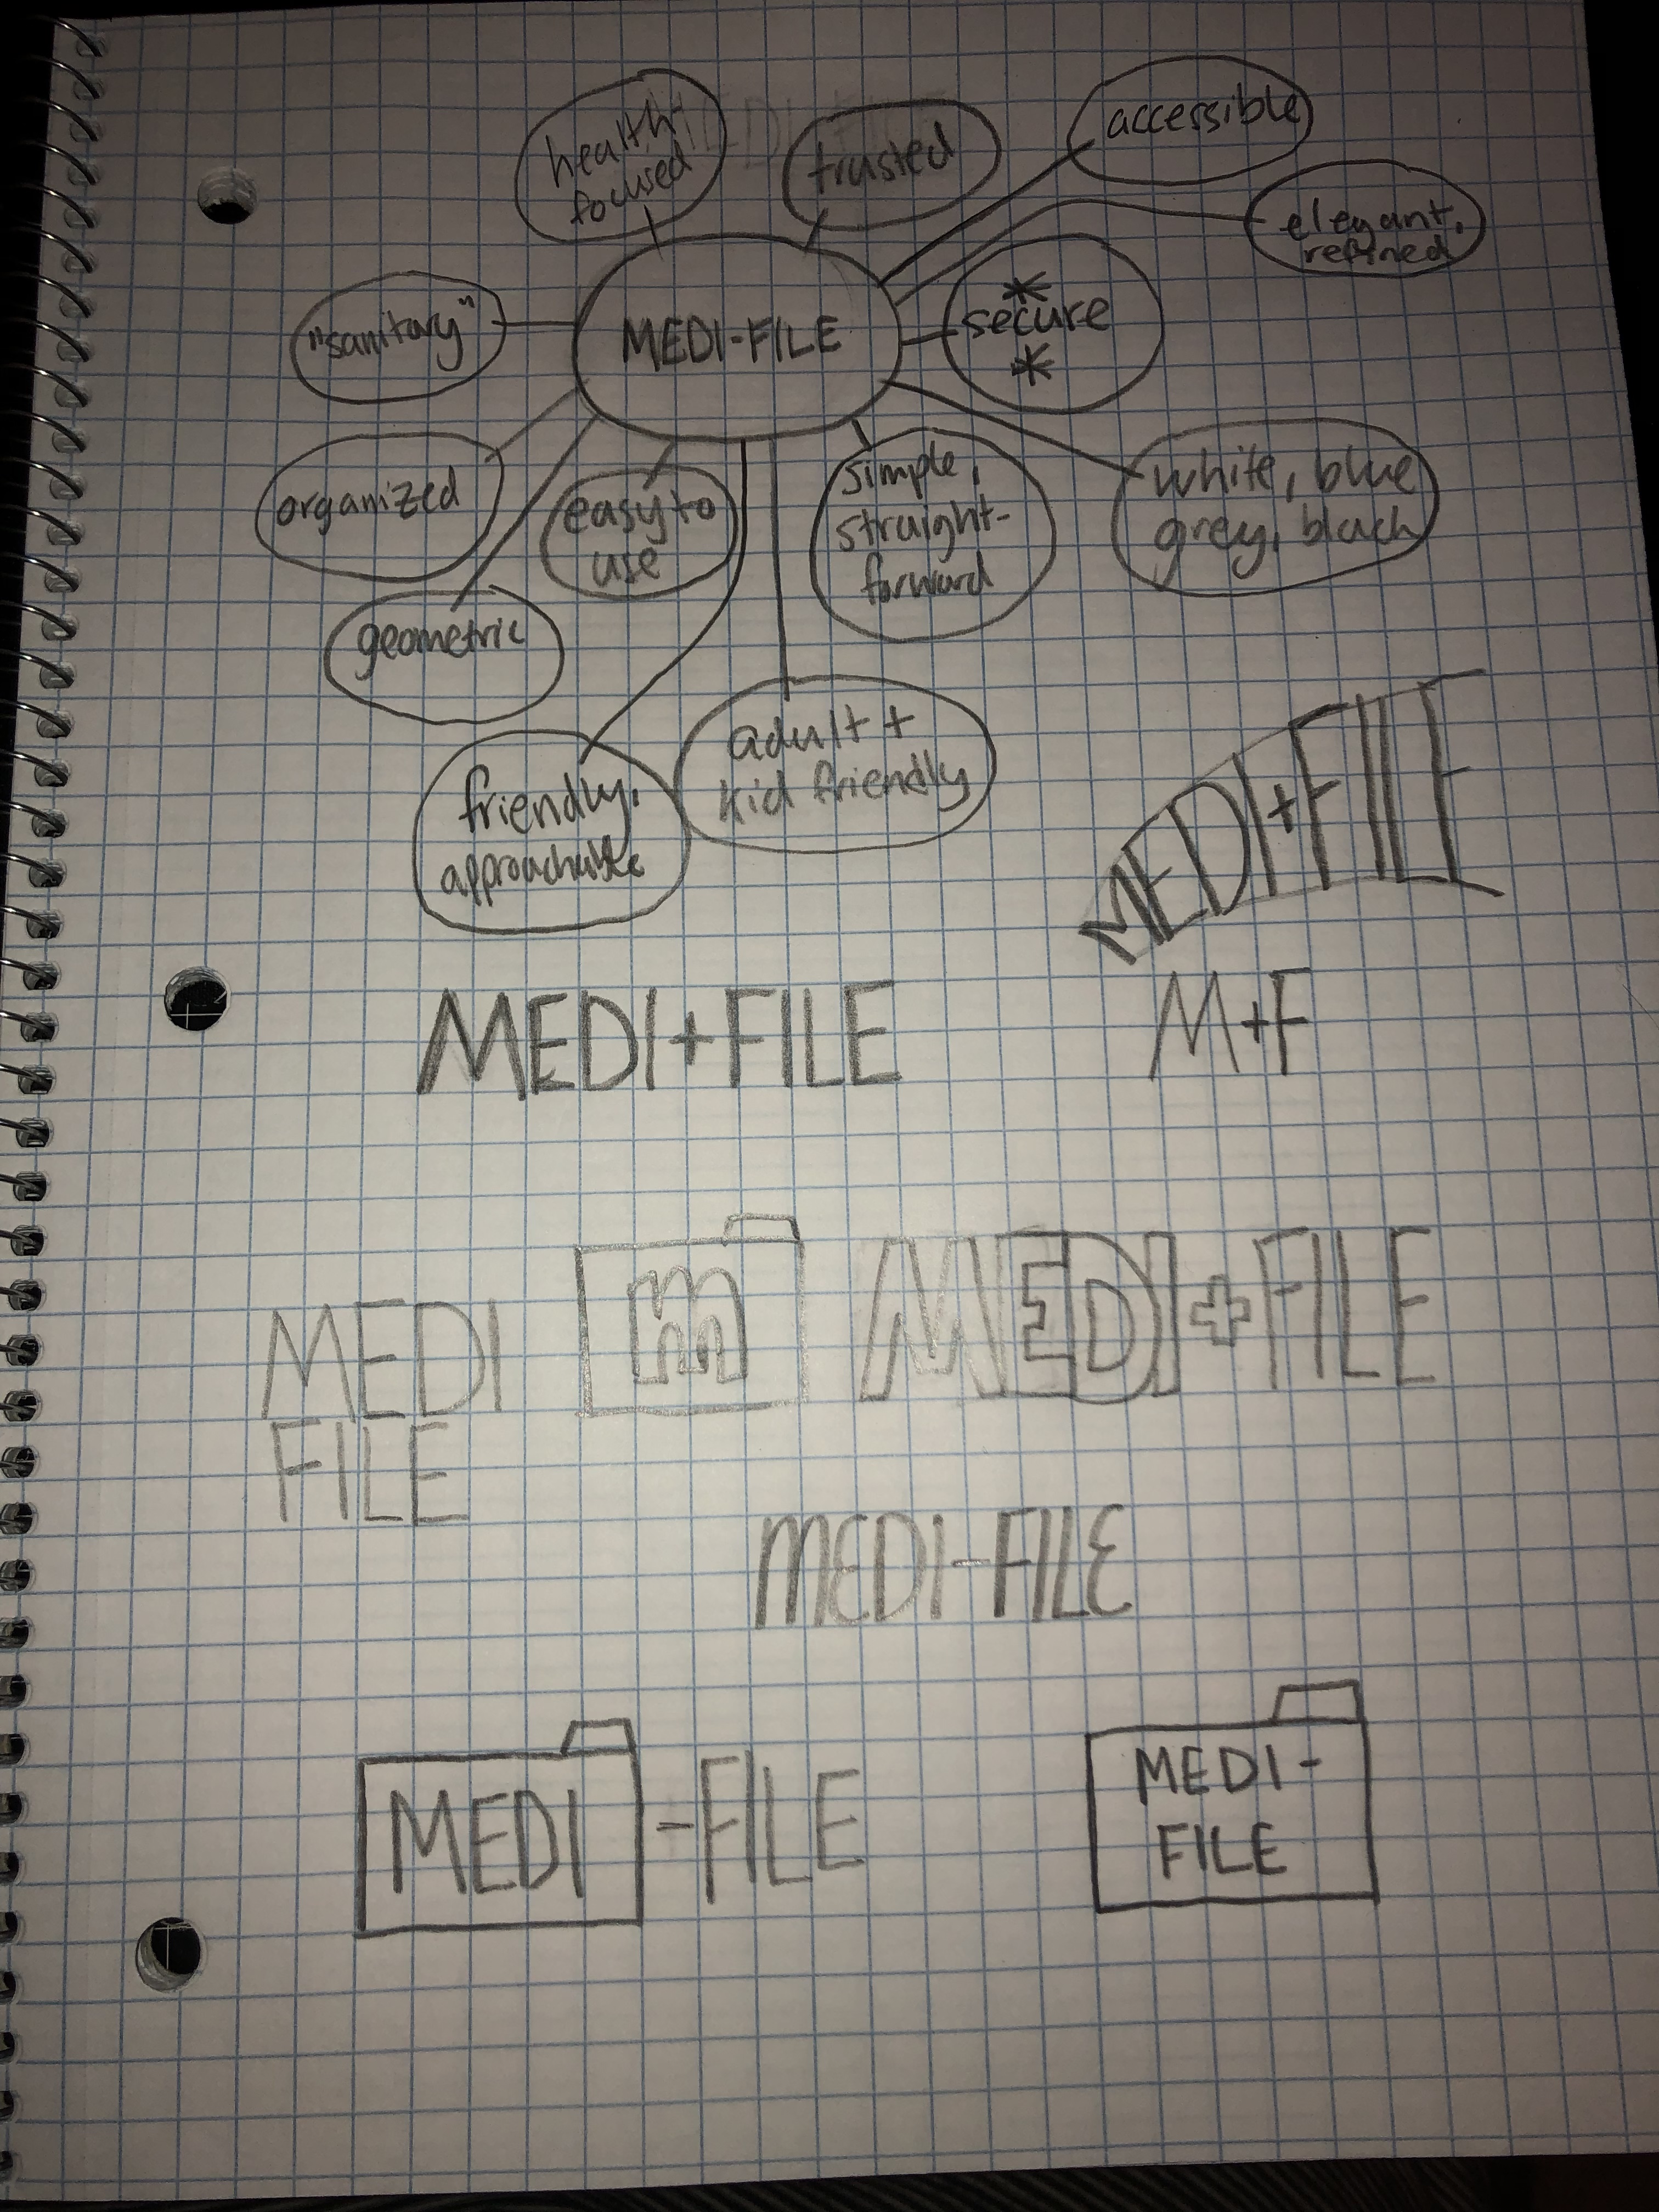 health-
focused
trusted
accessible
elegant,
refined
"sanitary"
MEDI-FILE
*
secure
*
organized
easy to
use
simple,
straight-
forward
white, blue
grey, black
geometric
friendly,
approachable
adult +
kid friendly
MEDI+FILE
MEDI+FILE
M+F
MEDI
FILE
m
MEDI+FILE
MEDI-FILE
MEDI-FILE
MEDI-
FILE